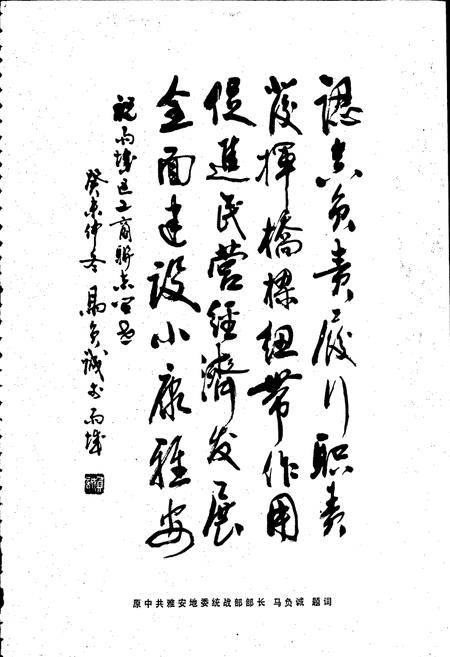 認真负责履行职责
发揮橋樑纽带作用
促進民营经濟发展
全面建设小康雅安
祝雨城区工商联志
癸未仲冬 馬负诚 雨城
原中共雅安地委统战部部长 马负诚 题词